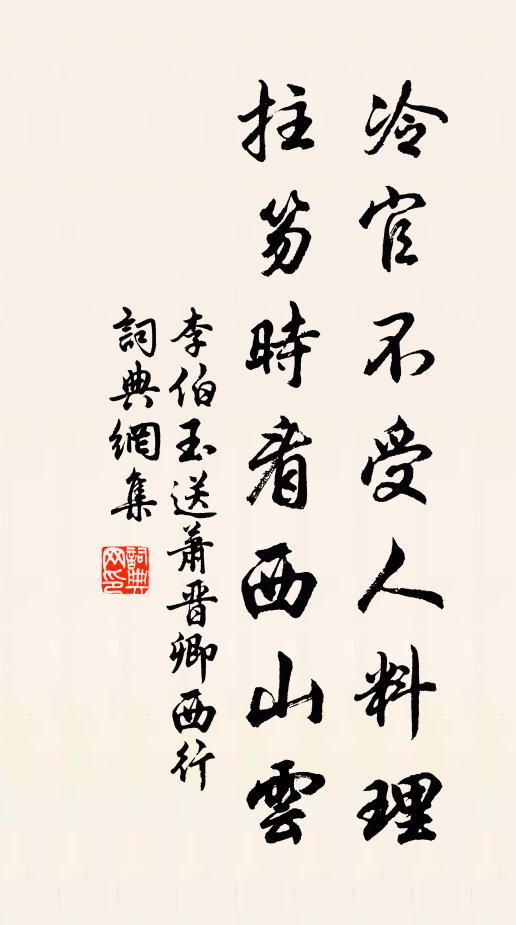 冷官不受人料理
拄笏時看西山雲
李伯玉送蕭晉卿西行
詞典網集
詞典網印